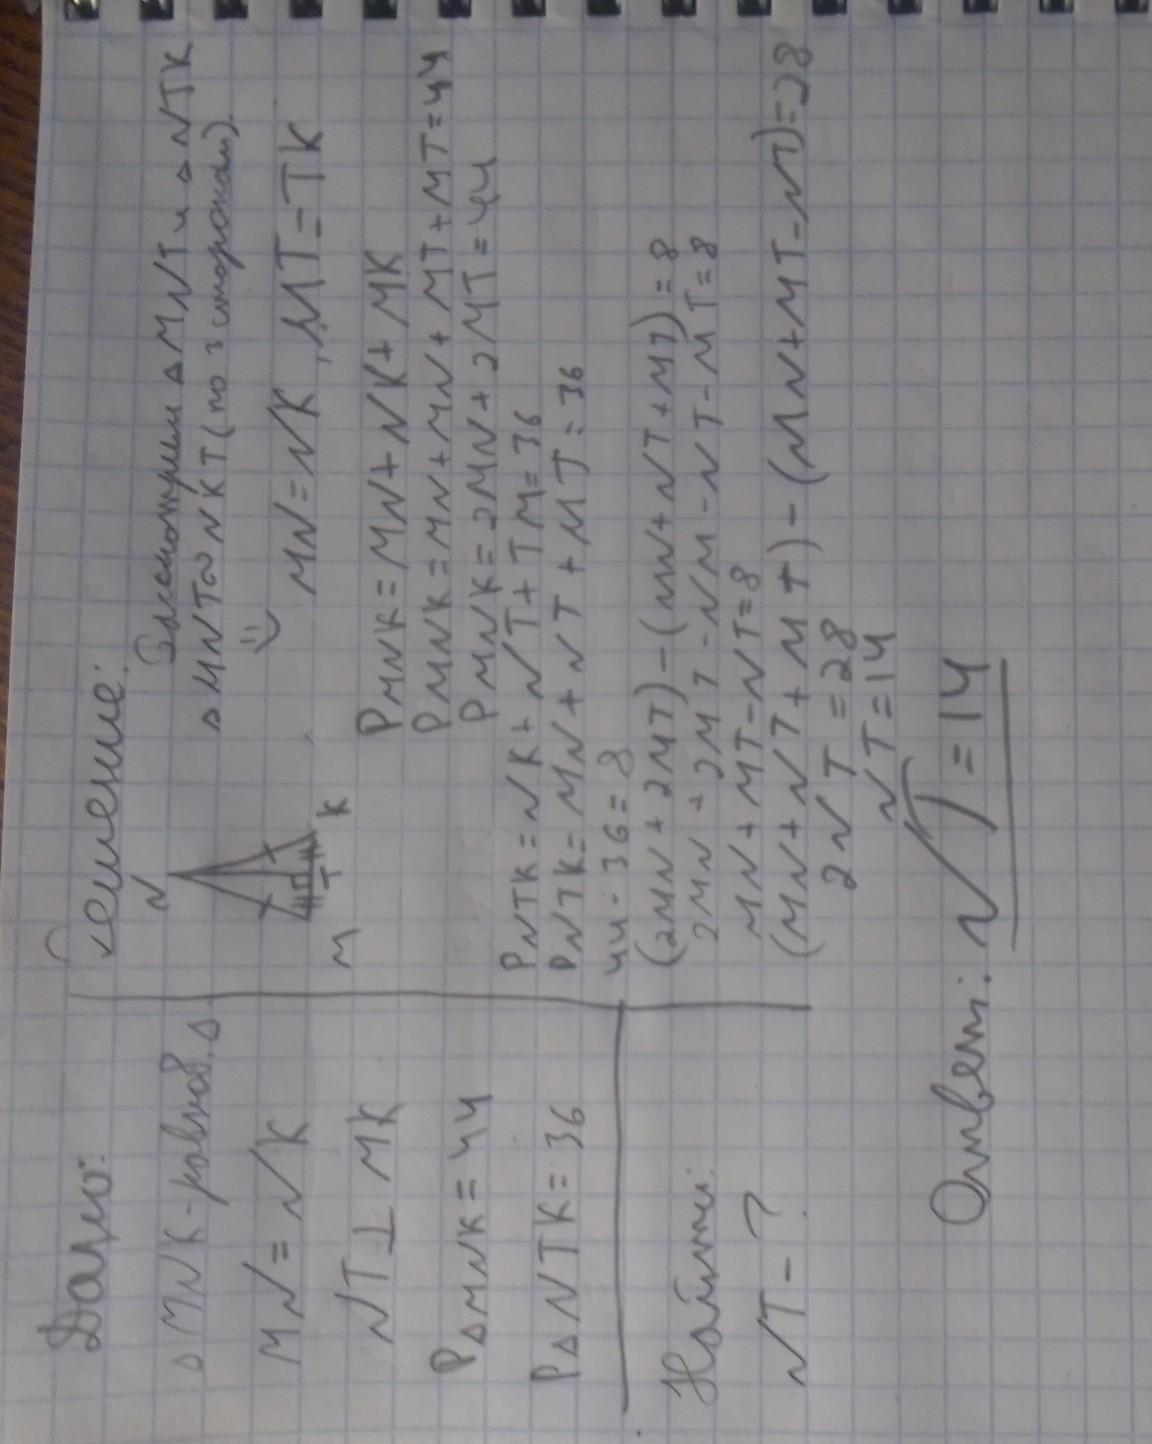 Дано:
△ MNK - равноб. △
MN = NK
NT ⊥ MK
P△MNK = 44
P△NTK = 36
Найти:
NT - ?
Решение:
N
M
T
K
Рассмотрим △ MNT и △ NTK
△ MNT ∾ NKT (по 3 сторонам).
MN = NK , MT = TK
PMNK = MN + NK + MK
PMNK = MN + MN + MT + MT = 44
PMNK = 2MN + 2MT = 44
PNTK = NK + NT + TM = 36
PNTK = MN + NT + MT = 36
44 - 36 = 8
(2MN + 2MT) - (MN + NT + MT) = 8
2MN + 2MT - NM - NT - MT = 8
MN + MT - NT = 8
(MN + NT + MT) - (MN + MT - NT) = 28
2NT = 28
NT = 14
Ответ: NT = 14